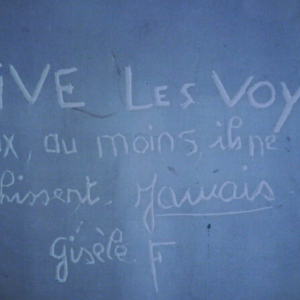 iVE Les VOY
x, au moins ils ne
hissent. Jamais.
Gisèle. F